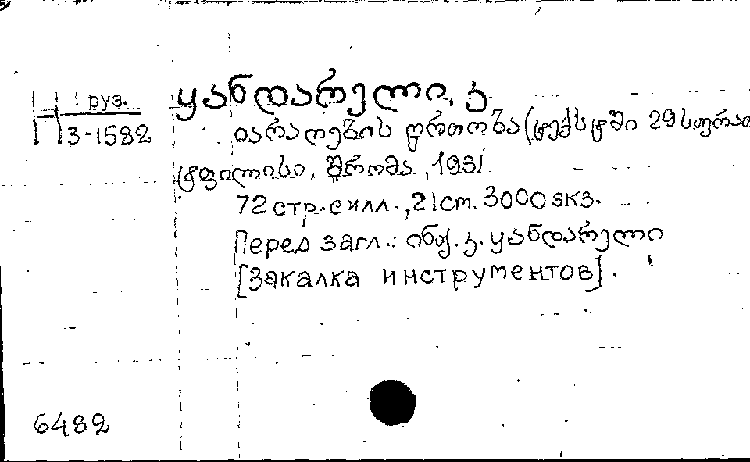 Груз.
ყანდარელი, კ.
Н3-1582
იარაღების წრთობა (ტექსტში 29 სურათ
ტფილისი, შრომა, 1931.
72 стр. с илл., 21 cm. 3000 экз.
Перед загл.: ინჟ. კ. ყანდარელი
[Закалка инструментов].
6482